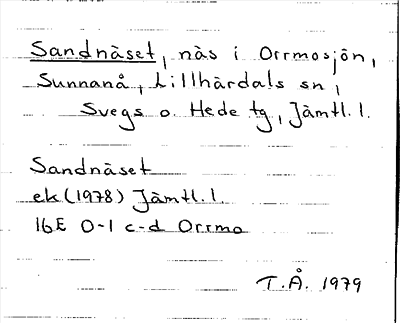 Sandnäset, näs i Orrmosjön,
Sunnanå, Lillhärdals sn,
Svegs o. Hede tg, Jämtl. l.
Sandnäset
ek (1978) Jämtl. l.
16E 0-1 c-d Orrmo
T.Å. 1979